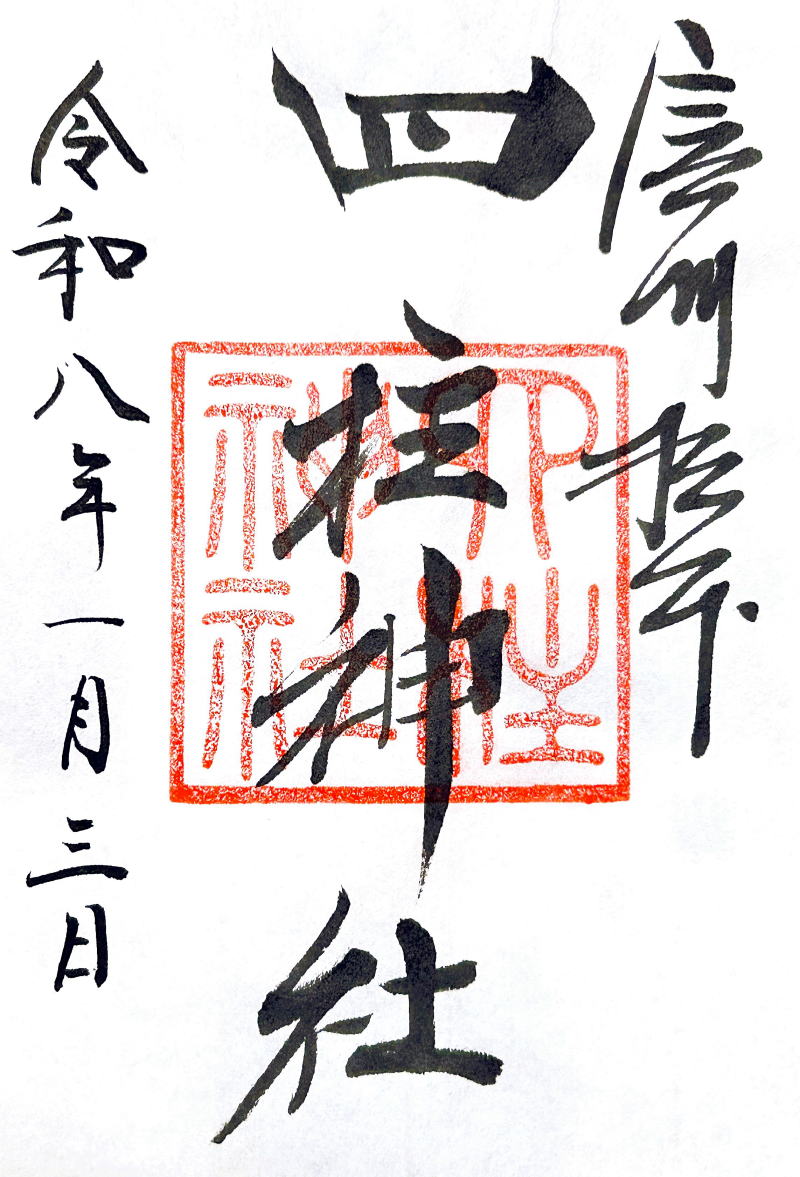 信州松本
四柱神社
四柱神社
令和八年一月三日